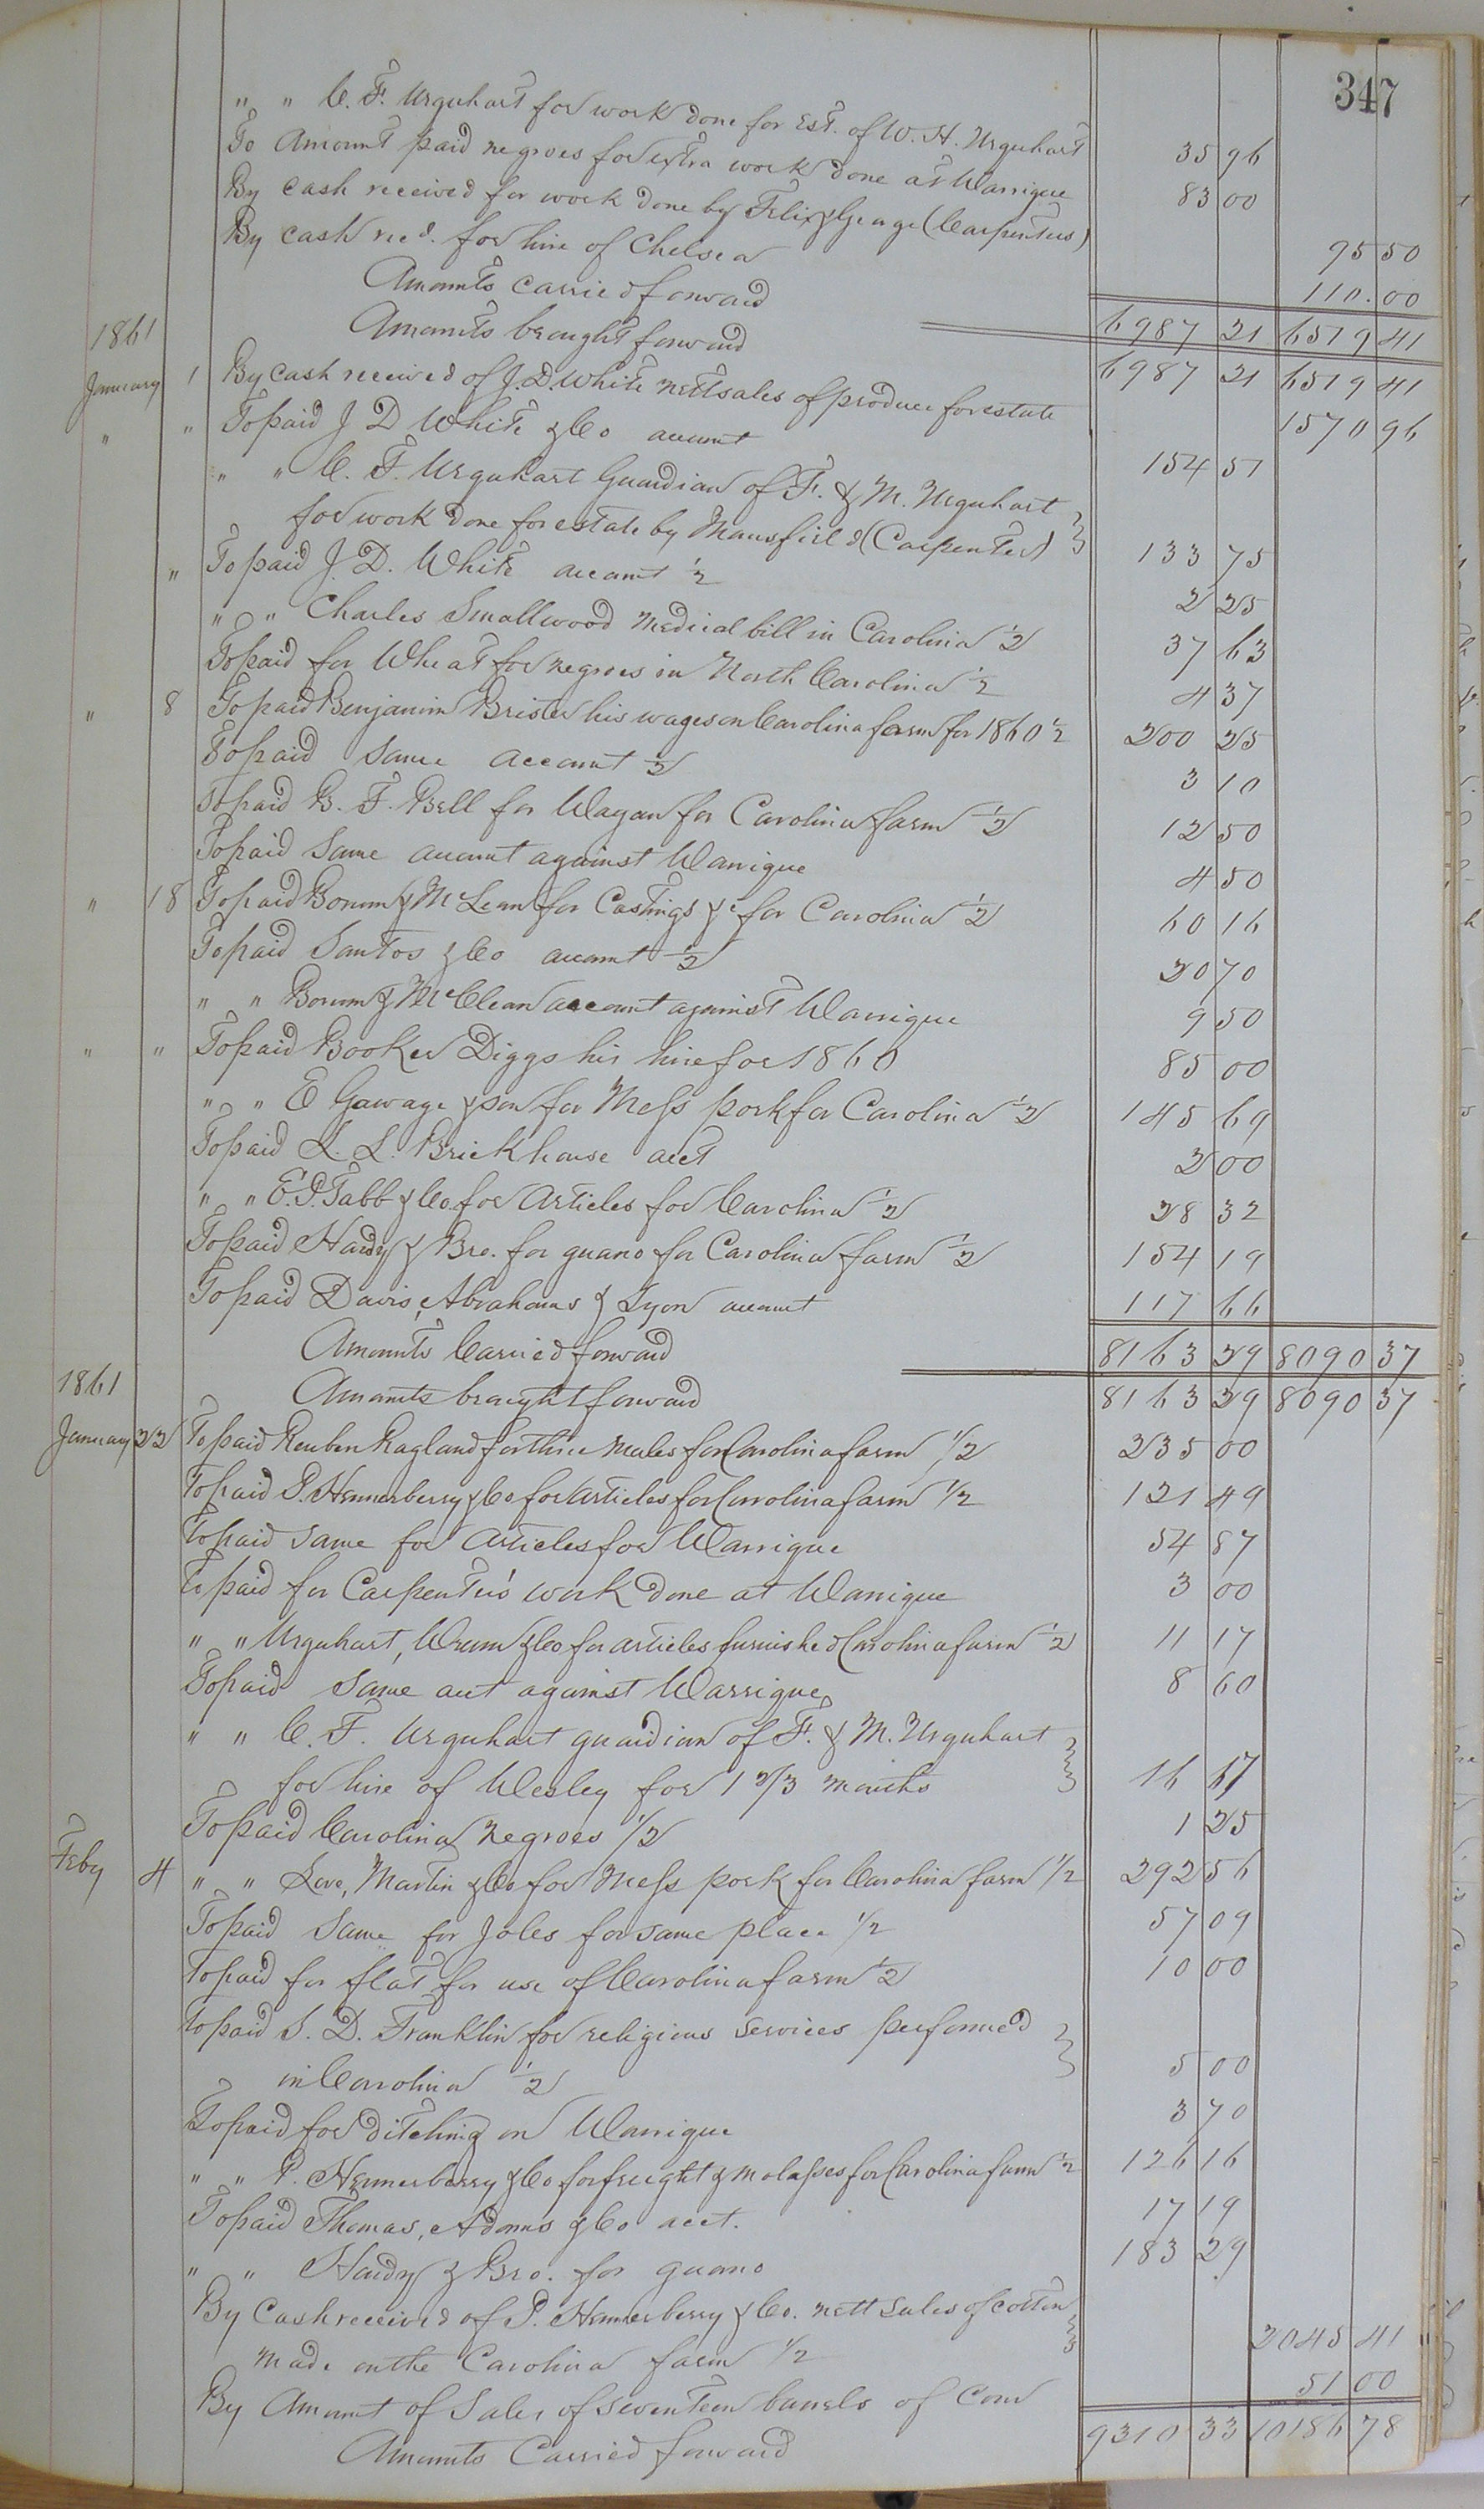 347
" " C. F. Urquhart for work done for Est. of W. H. Urquhart 35 96
To Amount paid negroes for extra work done at Warrique 83 00
By cash received for work done by Felix & George (Carpenters) 95 50
By cash recd. for hire of Chelsea 110.00
Amounts carried forward 6987 21 6519 41
1861 Amounts brought forward 6987 21 6519 41
January 1 By cash received of J. D. White nett sales of produce for estate 1570 96
" " To paid J D White & Co account 154 51
" " C. F. Urquhart Guardian of F. & M. Urquhart
for work done for estate by Mansfield (Carpenter) 133 75
" To paid J. D. White account 1/2 2 25
" " Charles Smallwood medical bill in Carolina 1/2 37 63
To paid for Wheat for negroes in North Carolina 1/2 4 37
" 8 To paid Benjamin Brister his wages on Carolina farm for 1860 1/2 200 25
To paid same account 1/2 3 10
To paid B. F. Bell for Wagon for Carolina farm 1/2 12 50
To paid same account against Warrique 4 50
" 18 To paid Borum & McLean for Castings &c for Carolina 1/2 60 16
To paid Santos & Co account 1/2 20 70
" " Borum & McClean account against Warrique 9 50
" " To paid Booker Diggs his hire for 1860 85 00
" " E Gawage & son for Mess pork for Carolina 1/2 145 69
To paid L. L. Brickhouse acct 2 00
" " E. P. Tabb & Co. for Articles for Carolina 1/2 28 32
To paid Hardy & Bro. for guano for Carolina farm 1/2 154 19
To paid Davis, Abrahams & Lyon account 117 66
Amounts Carried forward 8163 29 8090 37
1861 Amounts brought forward 8163 29 8090 37
January 22 To paid Reuben Ragland for three Mules for Carolina farm 1/2 235 00
To paid P. Hennerberry & Co for Articles for Carolina farm 1/2 121 49
To paid same for Articles for Warrique 54 87
To paid for Carpenter's work done at Warrique 3 00
" " Urquhart, & Co for articles furnished Carolina farm 1/2 11 17
To paid same act against Warrique 8 60
" " C. F. Urquhart guardian of F. & M. Urquhart
for hire of Wesley for 1 2/3 months 16 67
To paid Carolina negroes 1/2 1 25
Feby 4 " " Love, Martin & Co for Mess pork for Carolina farm 1/2 292 56
To paid same for Joles for same place 1/2 57 09
To paid for flat for use of Carolina farm 1/2 10 00
To paid S. D. Franklin for religious services performed
in Carolina 1/2 5 00
To paid for ditching on Warrique 3 70
" " P. Hennerberry & Co for freight & molasses for Carolina farm 1/2 126 16
To paid Thomas, Adams & Co acct. 17 19
" " Hardy & Bro. for guano 183 29
By Cash received of P. Hennerberry & Co. nett sales of cotton
made on the Carolina farm 1/2 2045 41
By Amount of Sales of seventeen barrels of Corn 51 00
Amounts Carried forward 9310 33 10186 78